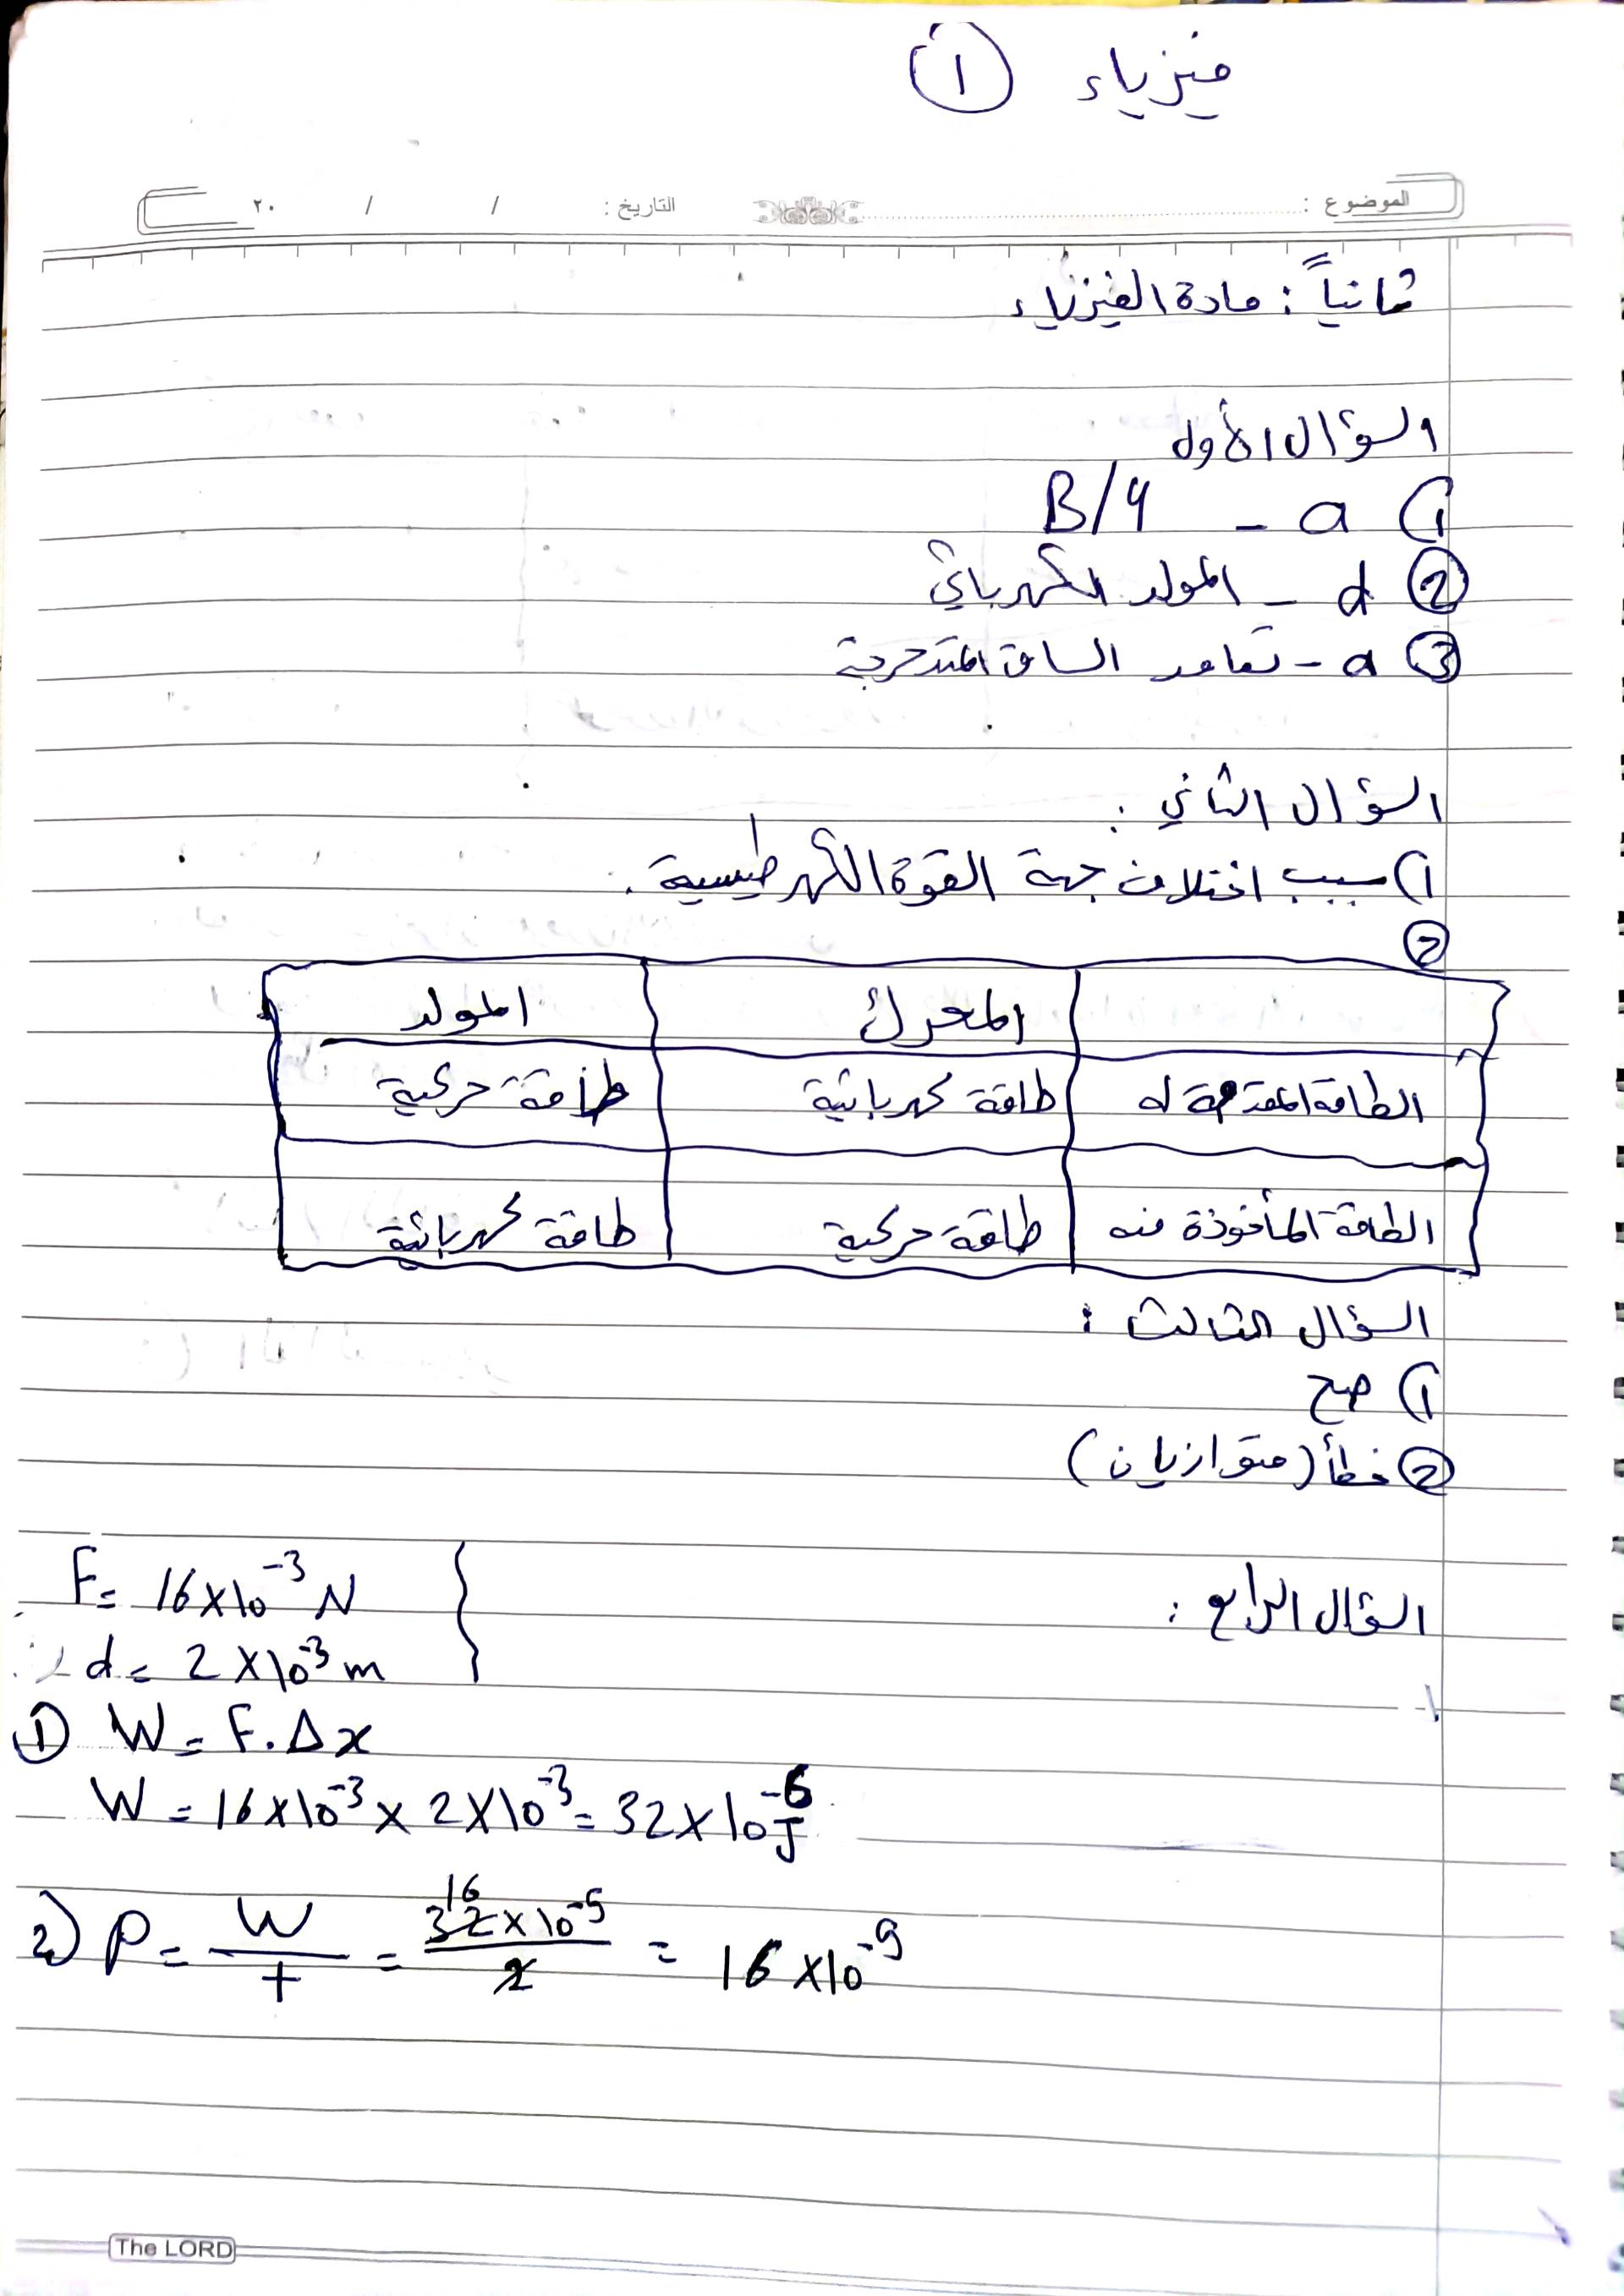 فيزياء ①
الموضوع : التاريخ : / / ٢٠
ثانياً : مادة الفيزياء
السؤال الأول
1) a - B/4
② d - المولد الكهربائي
③ a - تعامد الساق المتدحرجة
السؤال الثاني :
1) سبب اختلاف جهة القوة الكهرطيسية .
②
المحرك المولد
الطاقة المقدمة له طاقة كهربائية طاقة حركية
الطاقة المأخوذة منه طاقة حركية طاقة كهربائية
السؤال الثالث :
1) صح
② خطأ (متوازيان)
السؤال الرابع :
F = 16×10⁻³ N
d = 2×10⁻³ m
① W = F.Δx
W = 16×10⁻³ × 2×10⁻³ = 32×10⁻⁶ J
2) P = W/t = 32×10⁻⁵/2 = 16×10⁻⁹
The LORD